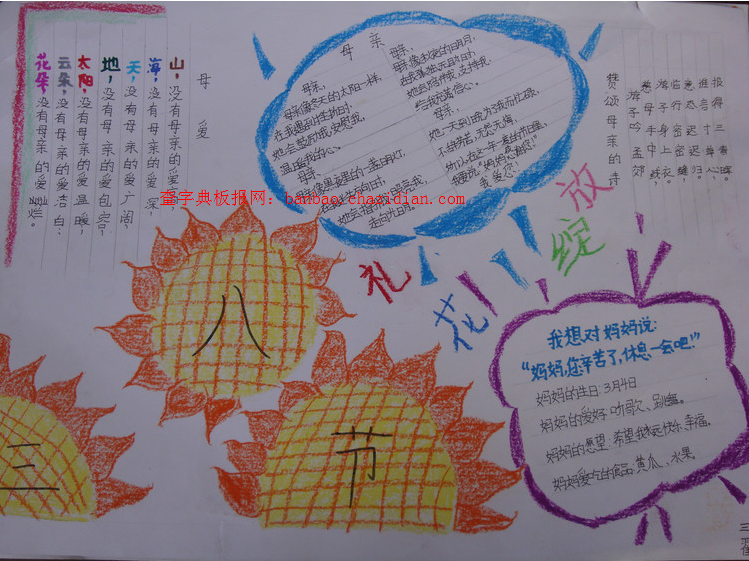 母爱
山，没有母亲的爱
海，没有母亲的爱深，
天，没有母亲的爱广阔，
地，没有母亲的爱包容，
太阳，没有母亲的爱温暖，
云朵，没有母亲的爱洁白，
花朵，没有母亲的爱灿烂。
母亲
母亲，
母亲像冬天的太阳一样，
在我遇到挫折时，
她会鼓励我，安慰我，
温暖我的心。
母亲，
母亲像黑夜里的一盏明灯，
她会指
走向光明。
母亲，
在我孤独无助时，
她会陪伴我，支持我，
给我充满信心。
母亲，
她一天到晚为我而忙碌，
不辞劳苦，无怨无悔，
我要说“妈妈，您辛苦”
我爱您！
赞颂母亲的诗
游子吟 孟郊
慈母手中线，
游子身上衣。
临行密密缝，
意恐迟迟归。
谁言寸草心，
报得三春晖。
查字典板报网：hanbao.chazidian.com
礼花绽放
三八节
我想对妈妈说：
“妈妈，您辛苦了，休息一会吧！”
妈妈的生日：3月4日
妈妈的爱好：听歌、跳舞。
妈妈的愿望：希望我永远快乐、幸福。
妈妈爱吃的食品：黄瓜、水果
三